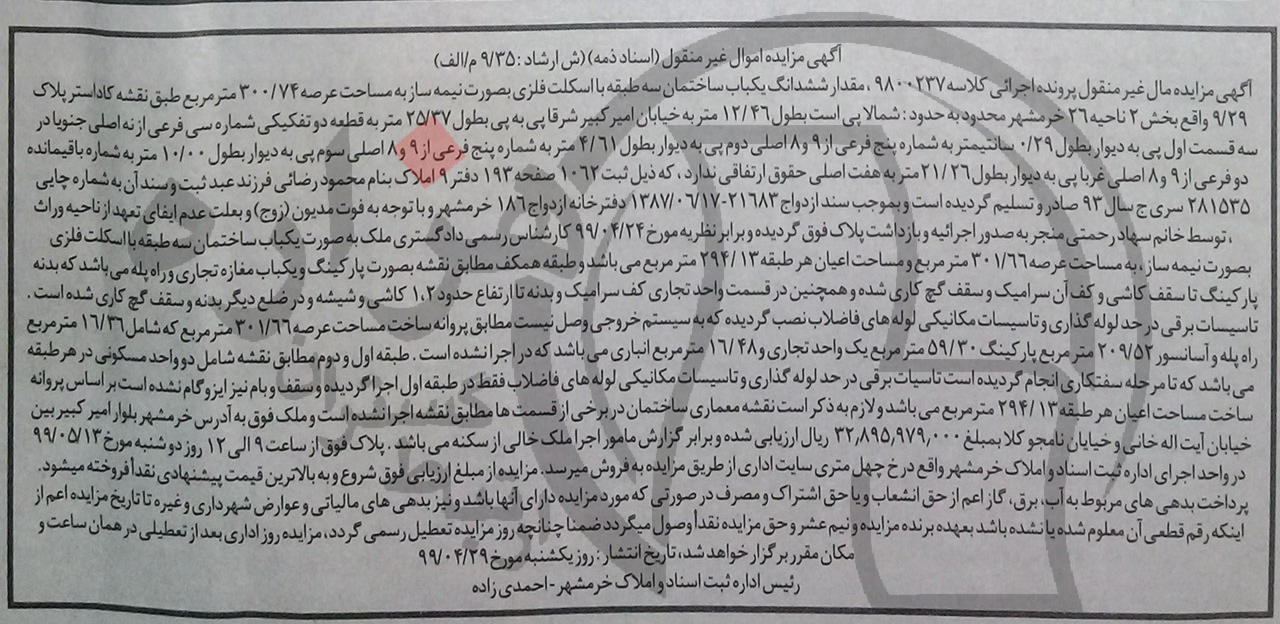 آگهی مزایده اموال غیر منقول (اسناد ذمه) (ش ارشاد: ۹/۳۵ م/الف)
آگهی مزایده مال غیر منقول پرونده اجرائی کلاسه ۹۸۰۰۲۳۷، مقدار ششدانگ یکباب ساختمان سه طبقه با اسکلت فلزی بصورت نیمه ساز به مساحت عرصه ۳۰۰/۷۴ متر مربع طبق نقشه کاداستر پلاک
۹/۲۹ واقع بخش ۲ ناحیه ۲۶ خرمشهر محدود به حدود: شمالا پی است بطول ۱۲/۴۶ متر به خیابان امیر کبیر شرقا پی به پی بطول ۲۵/۳۷ متر به قطعه دو تفکیکی شماره سی فرعی از نه اصلی جنوبا در
سه قسمت اول پی به دیوار بطول ۰/۲۹ سانتیمتر به شماره پنج فرعی از ۹ و ۸ اصلی دوم پی به دیوار بطول ۴/۶۱ متر به شماره پنج فرعی از ۹ و ۸ اصلی سوم پی به دیوار بطول ۱۰/۰۰ متر به شماره باقیمانده
دو فرعی از ۹ و ۸ اصلی غربا پی به دیوار بطول ۲۱/۲۶ متر به هفت اصلی حقوق ارتفاقی ندارد، که ذیل ثبت ۱۰۶۲ صفحه ۱۹۳ دفتر ۹ املاک بنام محمود رضائی فرزند عبد ثبت و سند آن به شماره چاپی
۲۸۱۵۳۵ سری ج سال ۹۳ صادر و تسلیم گردیده است و بموجب سند ازدواج ۲۱۶۸۳-۱۳۸۷/۰۶/۱۷ دفترخانه ازدواج ۱۸۶ خرمشهر و با توجه به فوت مدیون (زوج) و بعلت عدم ایفای تعهد از ناحیه وراث
، توسط خانم سهاد رحمتی منجر به صدور اجرائیه و بازداشت پلاک فوق گردیده و برابر نظریه مورخ ۹۹/۰۴/۲۴ کارشناس رسمی دادگستری ملک به صورت یکباب ساختمان سه طبقه با اسکلت فلزی
بصورت نیمه ساز، به مساحت عرصه ۳۰۱/۶۶ متر مربع و مساحت اعیان هر طبقه ۲۹۴/۱۳ متر مربع می باشد و طبقه همکف مطابق نقشه بصورت پارکینگ و یکباب مغازه تجاری و راه پله می باشد که بدنه
پارکینگ تا سقف کاشی و کف آن سرامیک و سقف گچ کاری شده و همچنین در قسمت واحد تجاری کف سرامیک و بدنه تا ارتفاع حدود ۱،۲ کاشی و شیشه و در ضلع دیگر بدنه و سقف گچ کاری شده است .
تاسیسات برقی در حد لوله گذاری و تاسیسات مکانیکی لوله های فاضلاب نصب گردیده که به سیستم خروجی وصل نیست مطابق پروانه ساخت مساحت عرصه ۳۰۱/۶۶ متر مربع که شامل ۱۶/۳۶ متر مربع
راه پله و آسانسور ۲۰۹/۵۲ متر مربع پارکینگ ۵۹/۳۰ متر مربع یک واحد تجاری و ۱۶/۴۸ متر مربع انباری می باشد که در اجرا نشده است . طبقه اول و دوم مطابق نقشه شامل دو واحد مسکونی در هر طبقه
می باشد که تا مرحله سفتکاری انجام گردیده است تاسیات برقی در حد لوله گذاری و تاسیسات مکانیکی لوله های فاضلاب فقط در طبقه اول اجرا گردیده و سقف و بام نیز ایزوگام نشده است بر اساس پروانه
ساخت مساحت اعیان هر طبقه ۲۹۴/۱۳ متر مربع می باشد و لازم به ذکر است نقشه معماری ساختمان در برخی از قسمت ها مطابق نقشه اجرا نشده است و ملک فوق به آدرس خرمشهر بلوار امیر کبیر بین
خیابان آیت اله خانی و خیابان نامجو کلا بمبلغ ۳۲,۸۹۵,۹۷۹,۰۰۰ ریال ارزیابی شده و برابر گزارش مامور اجرا ملک خالی از سکنه می باشد . پلاک فوق از ساعت ۹ الی ۱۲ روز دو شنبه مورخ ۹۹/۰۵/۱۳
در واحد اجرای اداره ثبت اسناد و املاک خرمشهر واقع در خ چهل متری سایت اداری از طریق مزایده به فروش میرسد. مزایده از مبلغ ارزیابی فوق شروع و به بالاترین قیمت پیشنهادی نقداً فروخته میشود.
پرداخت بدهی های مربوط به آب، برق، گاز اعم از حق انشعاب و یا حق اشتراک و مصرف در صورتی که مورد مزایده دارای آنها باشد و نیز بدهی های مالیاتی و عوارض شهرداری و غیره تا تاریخ مزایده اعم از
اینکه رقم قطعی آن معلوم شده یا نشده باشد بعهده برنده مزایده و نیم عشر و حق مزایده نقداً وصول میگردد ضمنا چنانچه روز مزایده تعطیل رسمی گردد، مزایده روز اداری بعد از تعطیلی در همان ساعت و
مکان مقرر برگزار خواهد شد، تاریخ انتشار : روز یکشنبه مورخ ۹۹/۰۴/۲۹
رئیس اداره ثبت اسناد و املاک خرمشهر - احمدی زاده